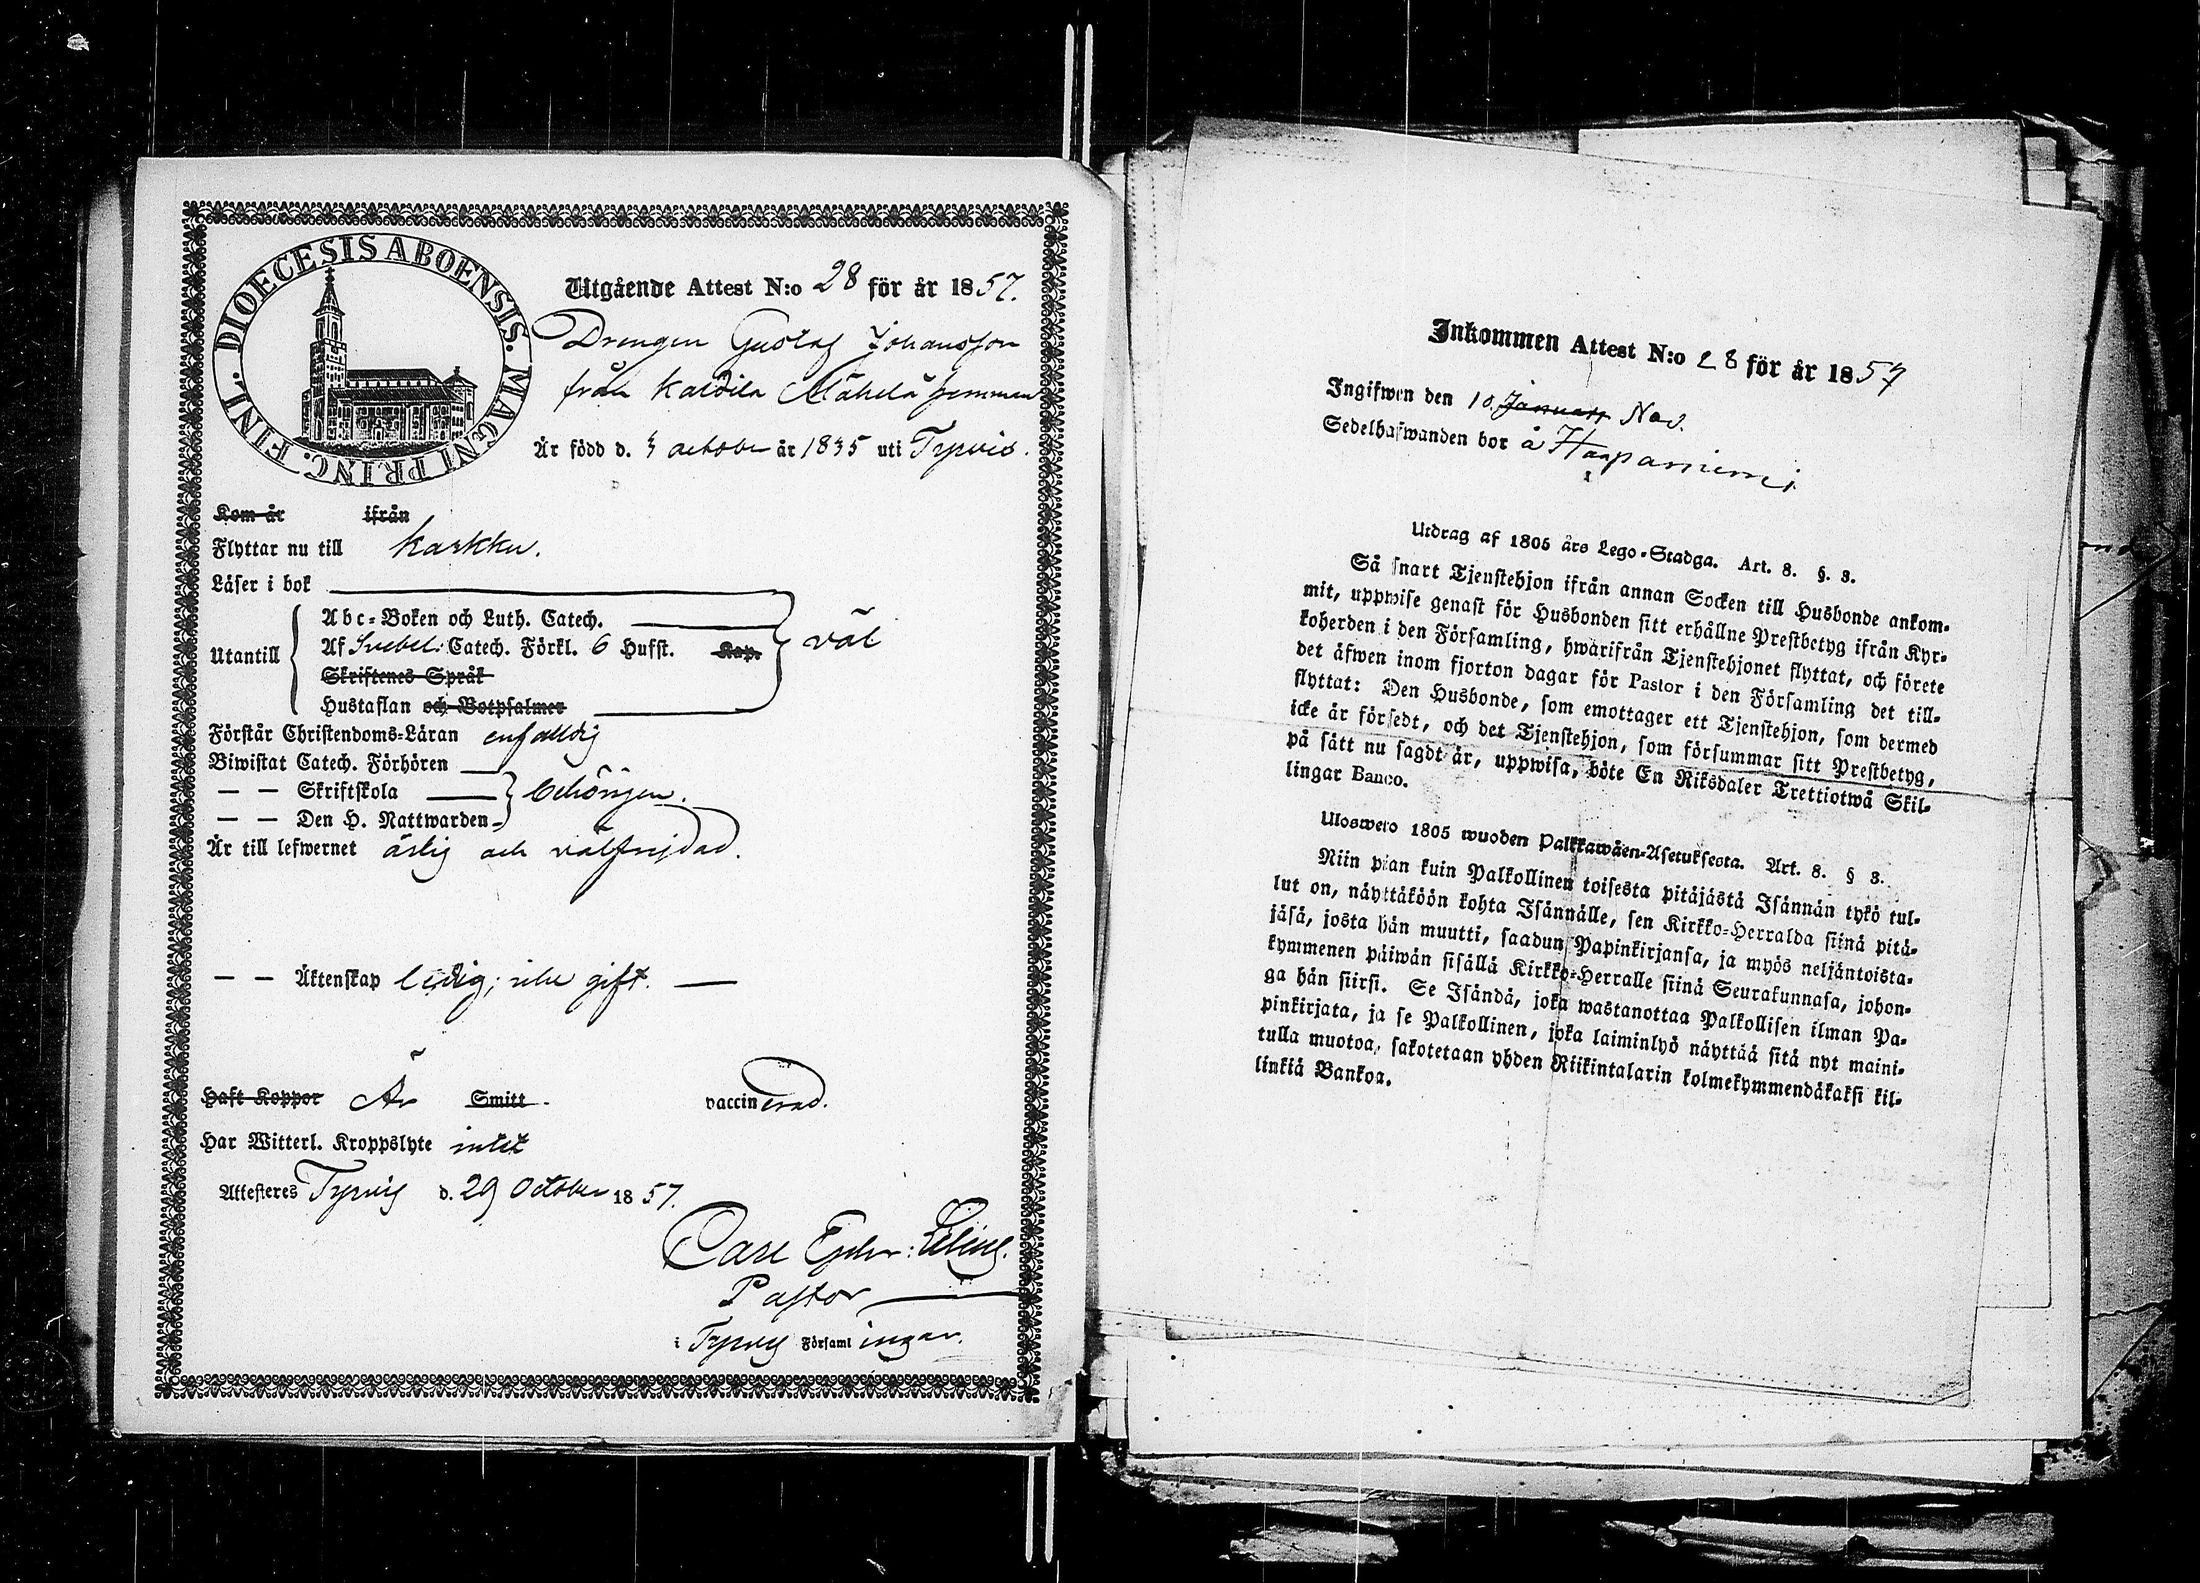 DIOECESIS ABOENSIS. MAGNI PRINC. FINL.
Utgående Attest N:o 28 för år 1857.
Drengen Gustaf Johansson
från Kaldila Mäkelä hemman
Är född d. october år 1835 uti Tyrvis.
Kom år ifrån
Flyttar nu till Karkku.
Läser i bok
Abc-Boken och Luth. Catech.
Utantill Af Svebel: Catech. Förkl. 6 Hufst. Kap. väl
Skriftenes Språk
Hustaflan och Botpsalmer
Förstår Christendoms-Läran enfaldig
Biwistat Catech. Förhören
— — Skriftskola behörigen.
— — Den H. Nattwarden
Är till lefwernet ärlig och välfrejdad.
— — Äktenskap ledig; icke gift.
Haft Koppor Är Smitt vaccinerad.
Har Witterl. Kroppslyte intet
Attesteres Tyrvis d. 29 October 1857.
Carl
Pastor
i Tyrvis Församlingar.
Inkommen Attest N:o 28 för år 1857
Ingifwen den 10 Januari Nov.
Sedelhafwanden bor å Haapaniemi
Utdrag af 1805 års Lego-Stadga. Art. 8. §. 3.
Så snart Tjenstehjon ifrån annan Socken till Husbonde ankom-
mit, uppwise genast för Husbonden sitt erhållne Prestbetyg ifrån Kyr-
koherden i den Församling, hwarifrån Tjenstehjonet flyttat, och förete
det äfwen inom fjorton dagar för Pastor i den Församling det till-
flyttat: Den Husbonde, som emottager ett Tjenstehjon, som dermed
icke är försedt, och det Tjenstehjon, som försummar sitt Prestbetyg,
på sätt nu sagdt är, uppwisa, böte En Riksdaler Trettiotwå Skil-
lingar Banco.
Uloswето 1805 wuoden Palkkawäen-Asetuksesta. Art. 8. § 3.
Niin pian kuin Palkollinen toisesta pitäjästä Isännän tykö tul-
lut on, näyttäköön kohta Isännälle, sen Kirkko-Herralda siinä pitä-
jäsä, josta hän muutti, saadun Papinkirjansa, ja myös neljäntoista-
kymmenen päiwän sisällä Kirkko-Herralle siinä Seurakunnasa, johon-
ga hän siirsi. Se Isändä, joka wastanottaa Palkollisen ilman Pa-
pinkirjata, ja se Palkollinen, joka laiminlyö näyttää sitä nyt maini-
tulla muotoa, sakotetaan yhden Riikintalarin kolmekymmendäkaksi kil-
linkiä Bankoa.